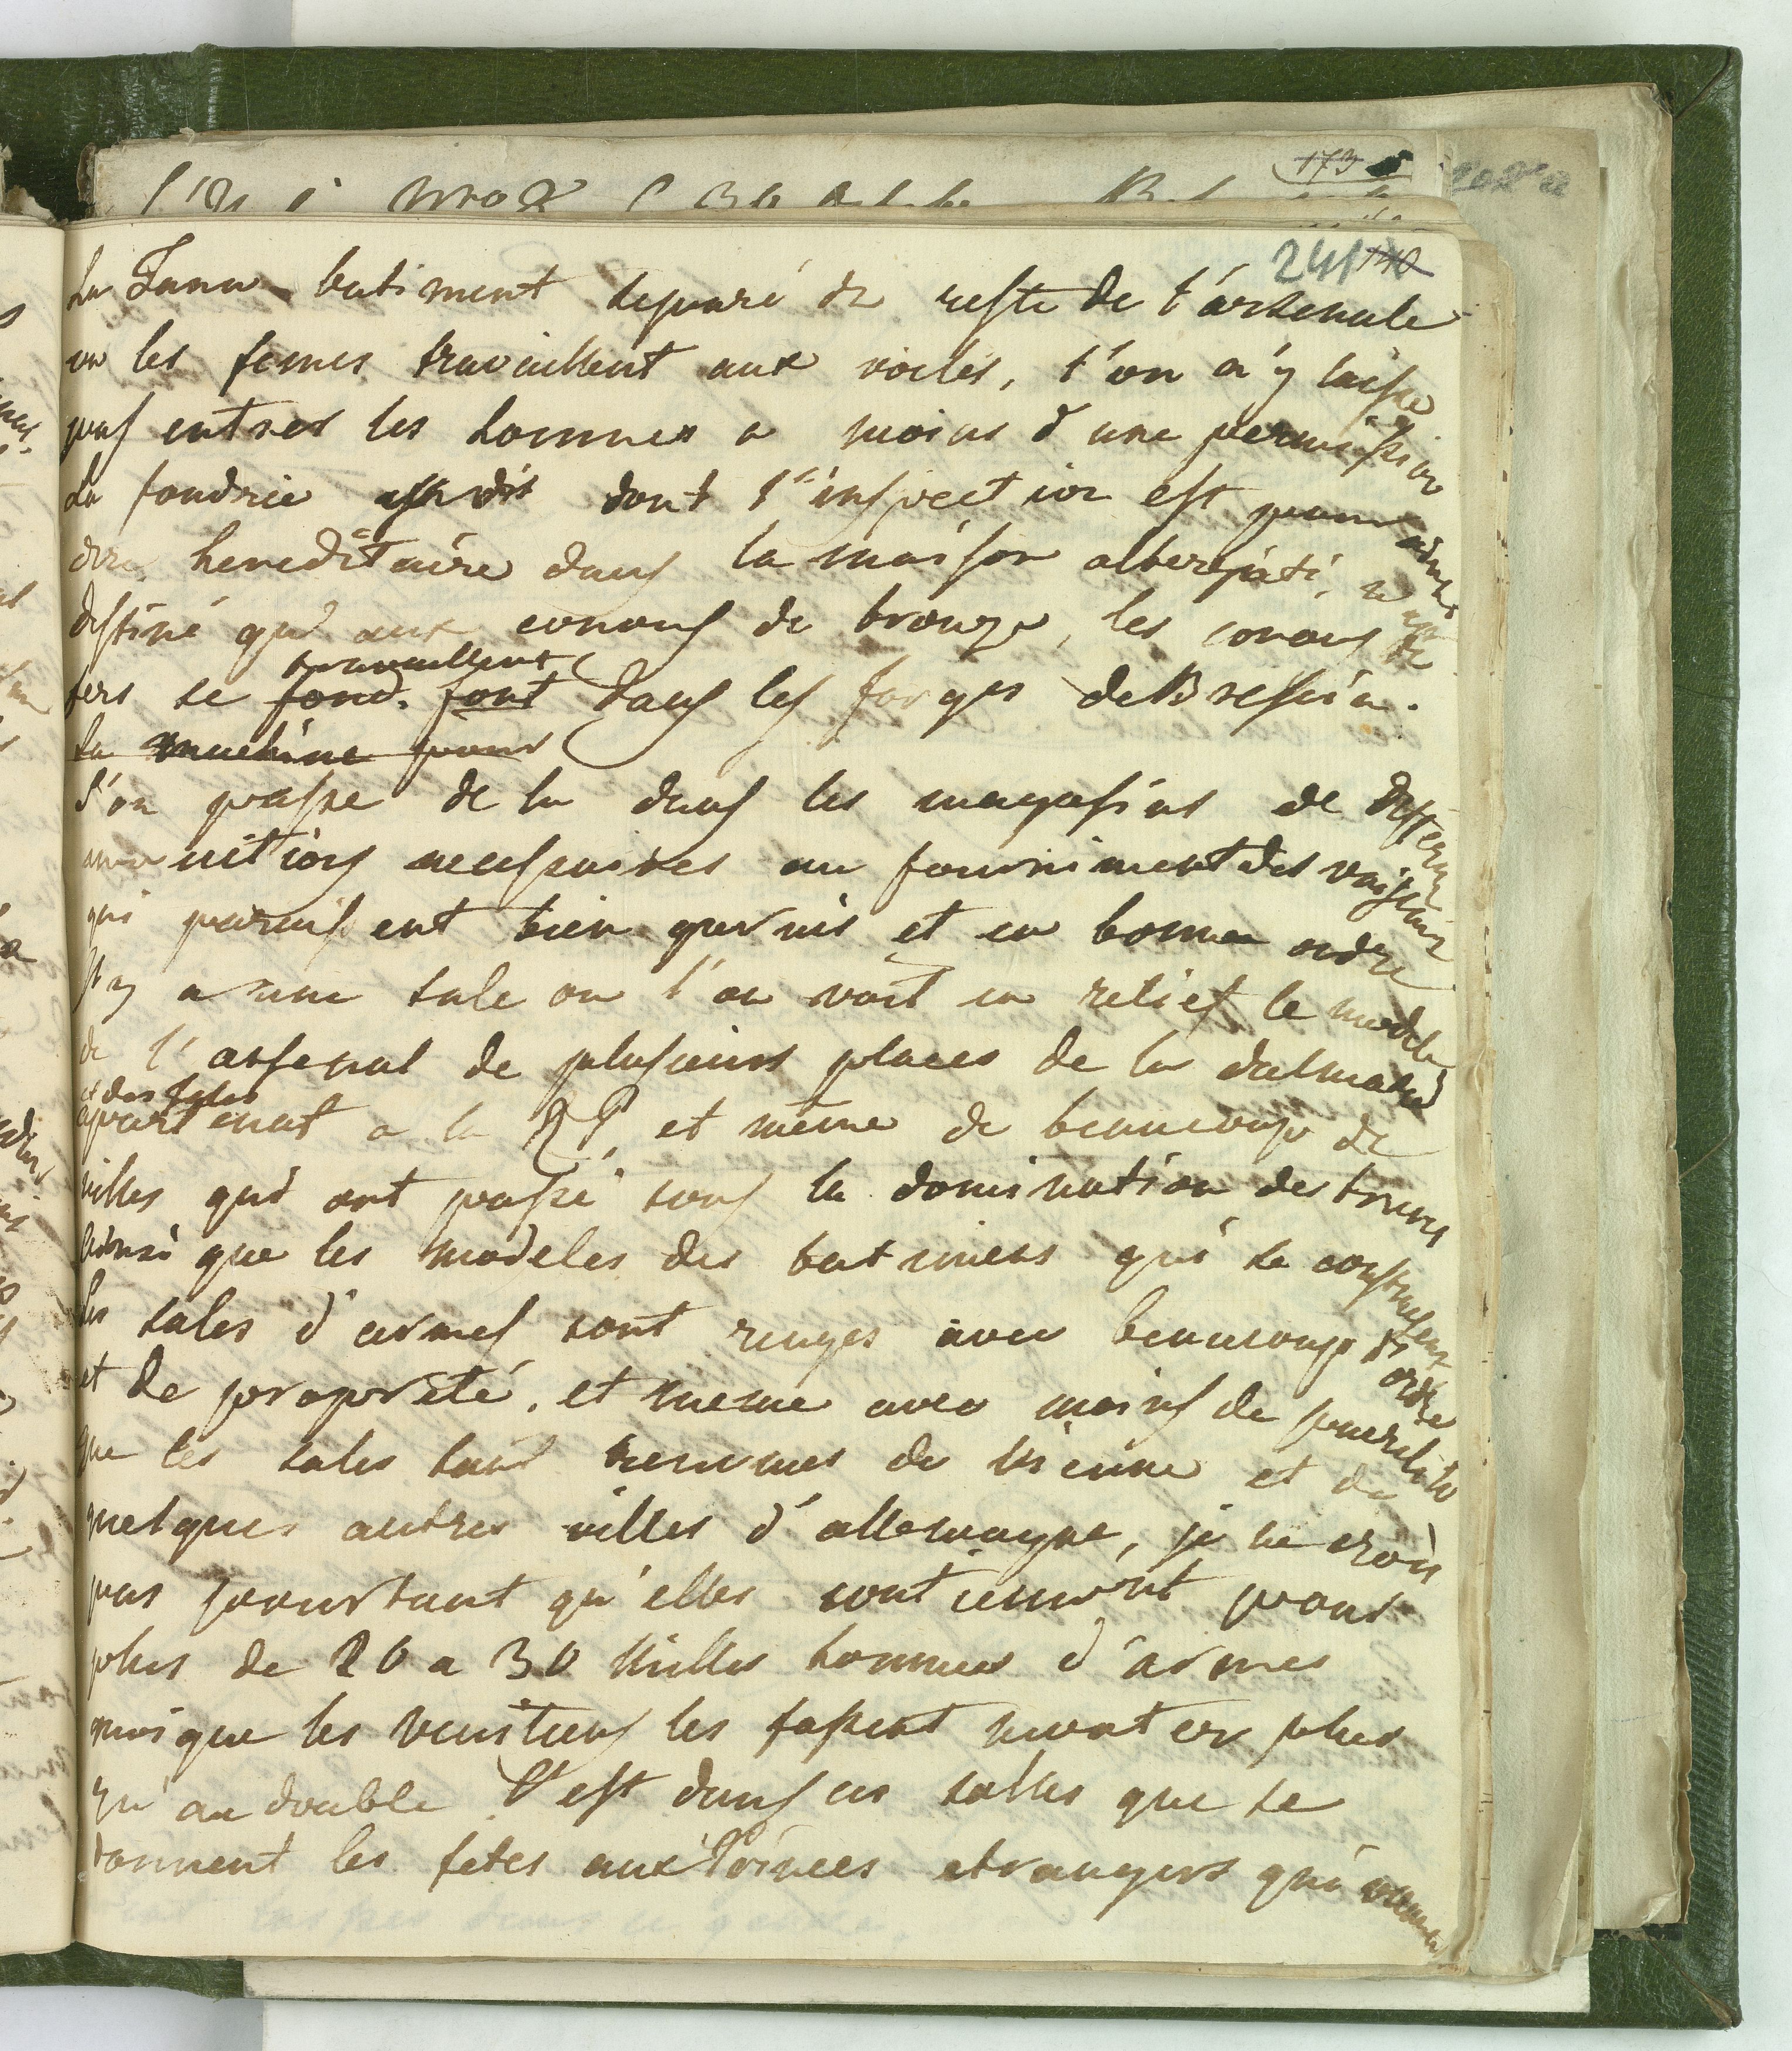 241 140
La Tana batiment separé du reste de l'arsenale
ou les femes travaillent aux voiles, l'on n'y laisse
pas entrer les hommes a moins d'une permission
La fondrie dont l'inspection est pour ainsi
dire hereditaire dans la maison albergati, n'est
destiné qui aux canons de bronze, les canons de
fers se fond. font travaillent dans les forges de Bressia.
La machine pour
l'on passe de la dans les magasins de differen
munitions necessaires au fourniment des vaisseaux
qui paraissent bien garnis et en bonne ordre
Il y a une sale ou l'on voit en relief le modele
de l'arsenal de plusieurs places de la dalmatie
et des Isles
apartenat a la RP, et même de beaucoup de
villes qui ont passé sous la domination des turcs
ainsi que les modeles des batimens qui se construisent
les sales d'armes sont ranges avec beaucoup d'ordre
et de propreté, et meme avec moins de puerilité
que les sales tant renomes de Vienne et de
quelques autres villes d'allemagne, je ne crois
pas pourtant qu'elles contiennent pour
plus de 20 a 30 Milles hommes d'armes
quoique les venitiens les fassent monter plus
qu'au double. C'est dans ces salles que se
donnent les fetes aux Princes etrangers qui viennent
173